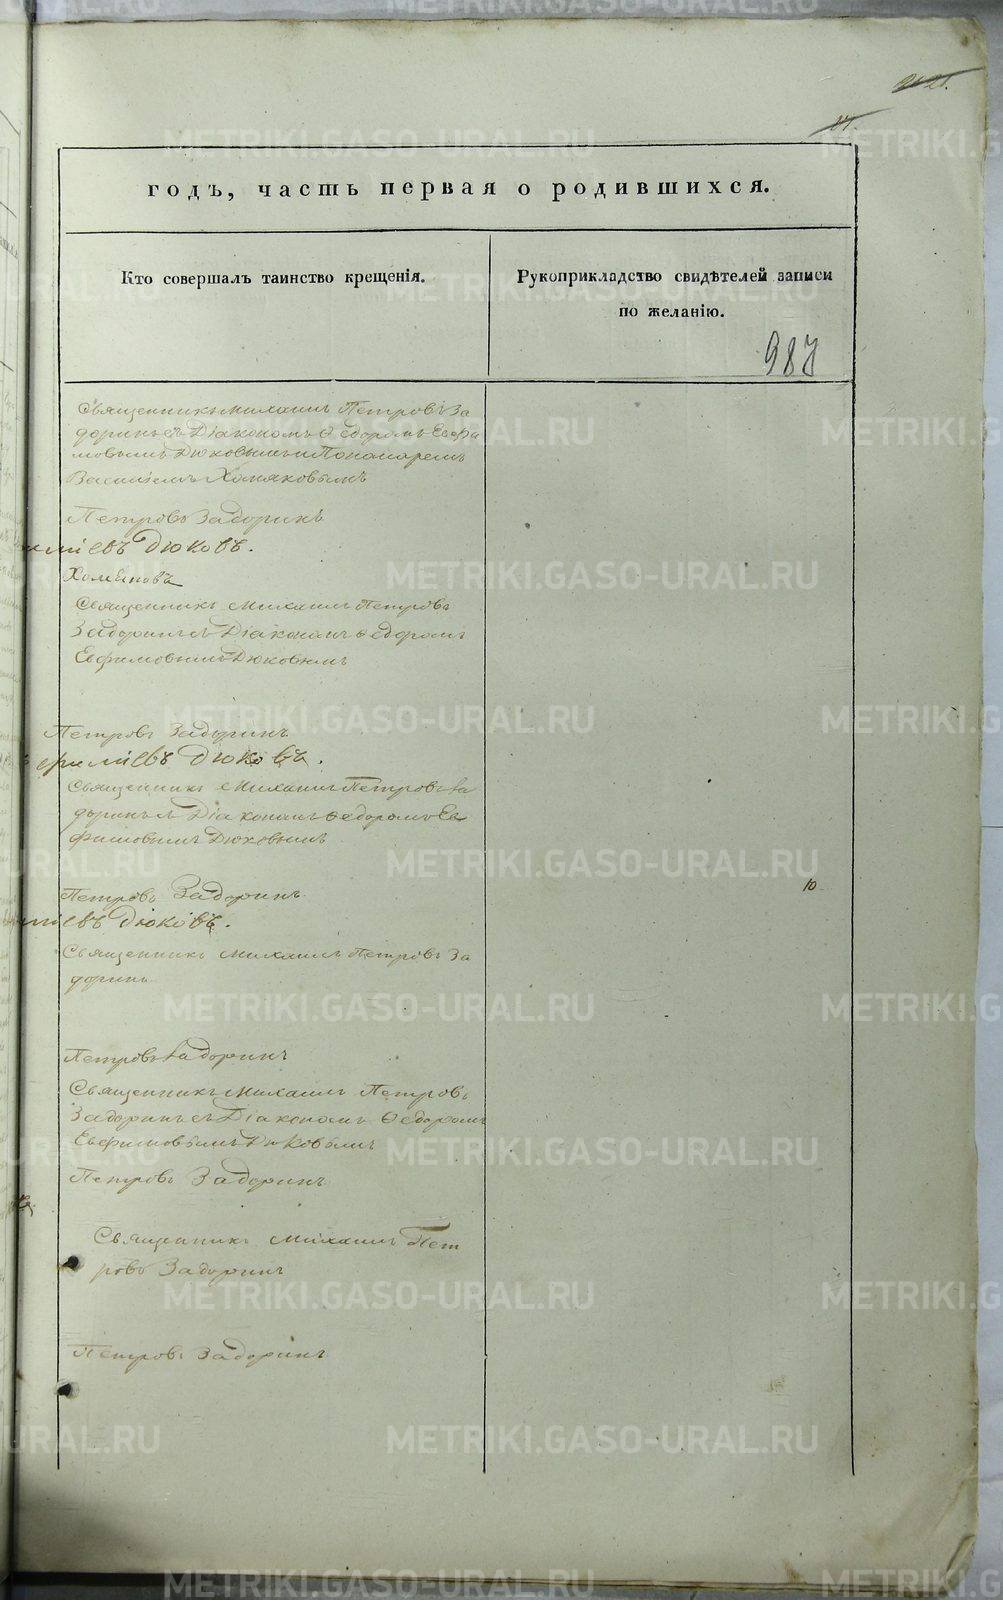 годъ, часть первая о родившихся.
Кто совершалъ таинство крещенія.
Рукоприкладство свидѣтелей записи
по желанію.
987
Священникъ Михаилъ Петровъ За
доринъ съ Діакономъ Ѳедоромъ Евфи
мовымъ Дюковымъ и Пономаремъ
Василіемъ Хомяковымъ
Петровъ Задоринъ
Дюковъ.
Хомяковъ
Священникъ Михаилъ Петровъ
Задоринъ съ Діакономъ Ѳедоромъ
Евфимовымъ Дюковымъ
Петровъ Задоринъ
Дюковъ.
Священникъ Михаилъ Петровъ За
доринъ съ Діакономъ Ѳедоромъ Ев
фимовымъ Дюковымъ
10
Петровъ Задоринъ
Дюковъ.
Священникъ Михаилъ Петровъ За
доринъ
Петровъ Задоринъ
Священникъ Михаилъ Петровъ
Задоринъ съ Діакономъ Ѳедоромъ
Евфимовымъ Дюковымъ
Петровъ Задоринъ
Священникъ Михаилъ Пет
ровъ Задоринъ
Петровъ Задоринъ
METRIKI.GASO-URAL.RU